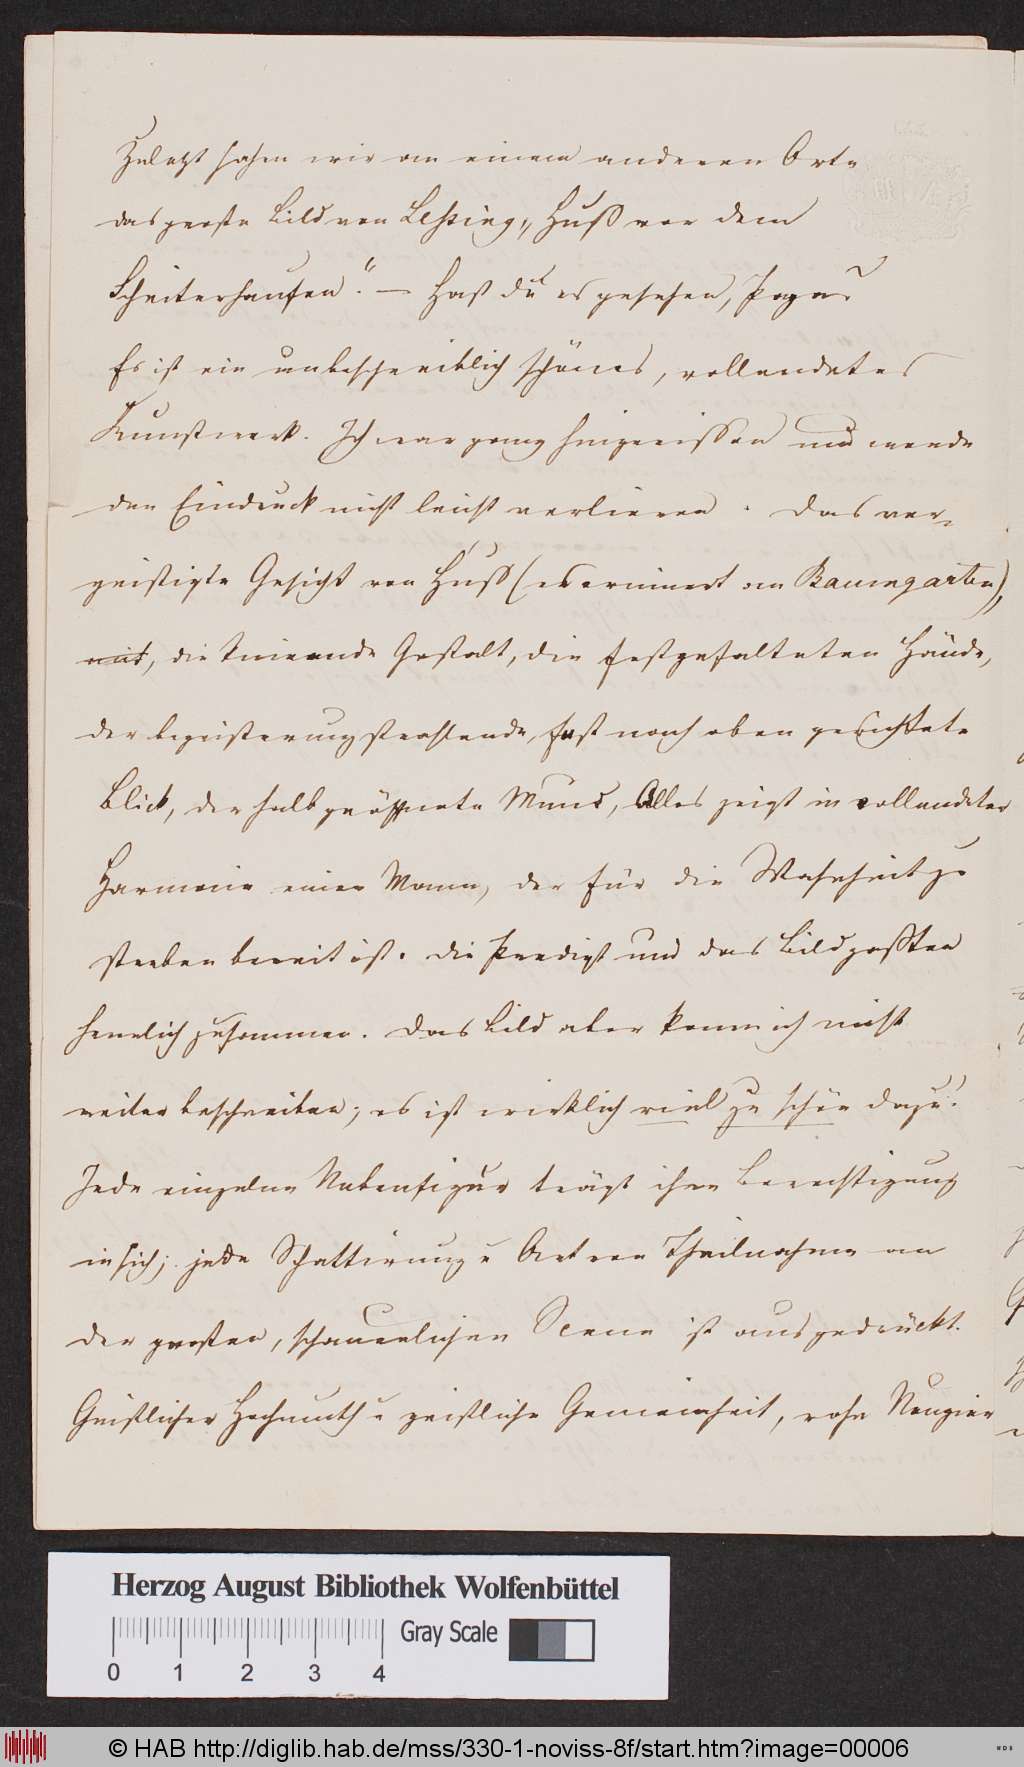 Zuletzt sahen wir an einem anderen Orte
das große Bild von Lessing, „Huß vor dem
Scheiterhaufen.“ — Hast du es gesehen, Papa?
Es ist ein unbeschreiblich schönes, vollendetes
Kunstwerk. Ich war ganz hingerissen und werde
den Eindruck nicht leicht verlieren. Das ver-
geistigte Gesicht von Huß (es erinnert an Baumgarten),
mit, die knieende Gestalt, die festgefalteten Hände,
der begeisterungstrahlende, fast nach oben gerichtete
Blick, der halb geöffnete Mund, Alles zeigt in vollendeter
Harmonie einen Mann, der für die Wahrheit zu
sterben bereit ist. Die Predigt und das Bild paßten
herrlich zusammen. Das Bild aber kann ich nicht
weiter beschreiben; es ist wirklich viel zu schön dazu!
Jede einzelne Nebenfigur trägt ihre Berechtigung
in sich; jede Schattirung u Art von Theilnahme an
der großen, schauerlichen Scene ist ausgedrückt.
Geistlicher Hochmuth u geistliche Gemeinheit, rohe Neugier
Herzog August Bibliothek Wolfenbüttel
0 1 2 3 4 Gray Scale
© HAB http://diglib.hab.de/mss/330-1-noviss-8f/start.htm?image=00006